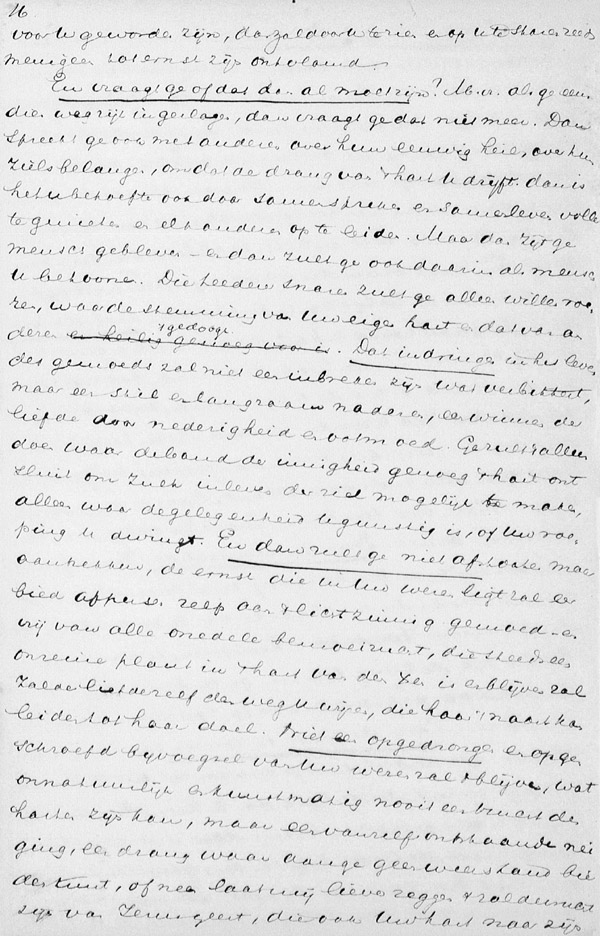 16
voor U geworden zijn, dan zal door U te zien en op U te staren reeds
menigeen tot ernst zijn ontvlamd.
En vraagt ge of dat dan al moet zijn? M.v. als ge een
die weg zijt ingeslagen, dan vraagt ge dat niet meer. Dan
spreekt ge ook met anderen over hun eeuwig heil, over hun
zielsbelangen, omdat de drang van 't hart U drijft. dan is
het U behoefte ook door samenspreken en samenleven voller
te genieten en elkanderen op te leiden. Maar dan zijt ge
mensch gebleven - en dan zult ge ook daarin als mensch
U betoonen. Die teedere snaren zult ge alleen willen roe-
ren, waar de stemming van Uw eigen hart en dat van an
deren 't gedoogt. Dat indringen in het leven
des gemoeds zal niet een inbreken zijn wat verbittert,
maar een stil en langzaam naderen, een winnen der
liefde door nederigheid en ootmoed. Ge zult 't alleen
doen waar de band der innigheid genoeg 't hart ont
sluit om zulk inleven der ziel mogelijk te maken,
alleen waar de gelegenheid U gunstig is, of Uw roe-
ping U dwingt. En dan zult ge niet afstooten maar
aantrekken, de ernst die in Uw wezen ligt zal eer
bied afpersen zelfs aan 't lichtzinnig gemoed - en
vrij van alle onedele bemoeizucht, die steeds een
onreine plant in 't hart van den is en blijven zal
zal de liefde zelf den weg U wijzen, die haar 't naast kan
leiden tot haar doel. Niet een opgedrongen en opge
schroefd bijvoegsel van Uw wezen zal 't blijven, wat
onnatuurlijk en kunstmatig nooit een bewust der
harten zijn kan, maar een vanzelf ontstaande nei
ging, een drang waar aan ge geen weerstand bie
den kunt, of neen laat mij liever zeggen 't zal de
zijn van Jezus geest, die ook Uw hart naar zijn